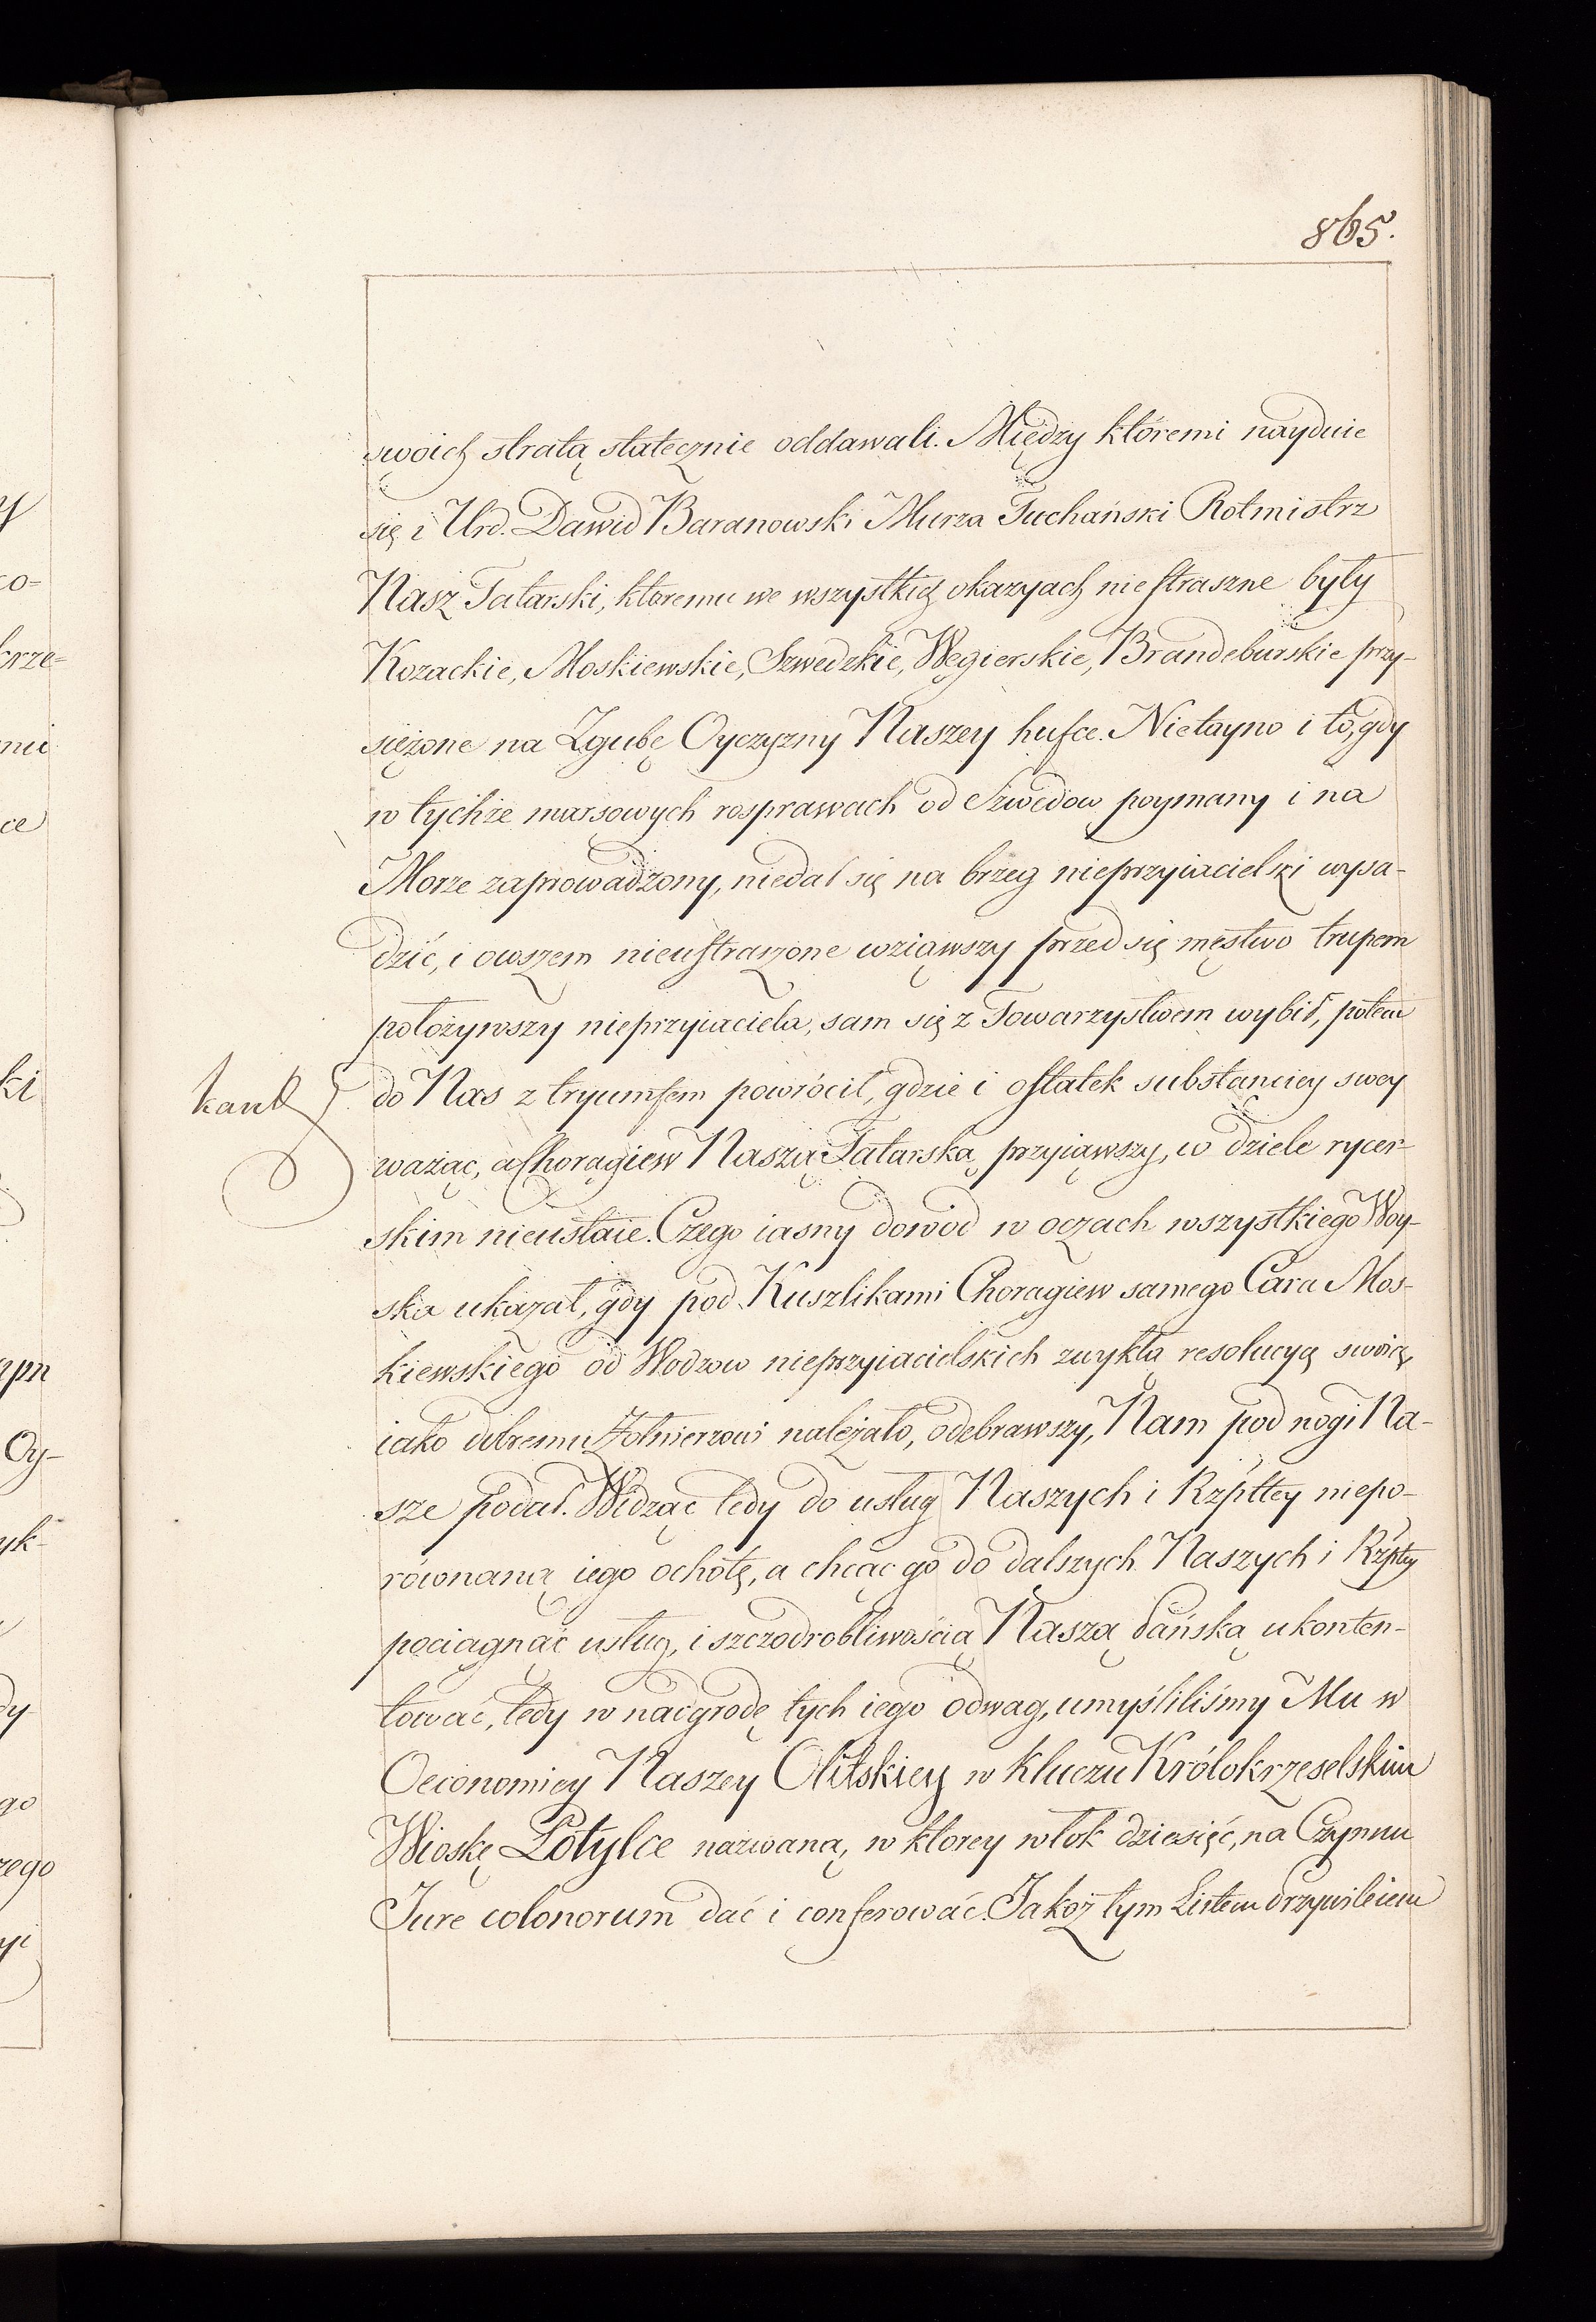 865.
swoich stratą statecznie oddawali. Między któremi nayduie
się i Urd. Dawid Baranowski Murza Juchański Rotmistrz
Nasz Tatarski, ktoremu we wszystkich okazyach nie straszne były
Kozackie, Moskiewskie, Szwedzkie, Węgierskie, Brandeburskie przy-
siężone na Zgubę Oyczyzny Naszey hufce. Nietayno i to, gdy
w tychże marsowych rosprawach od Szwedow poymany i na
Morze zaprowadzony, niedał się na brzeg nieprzyiacielski wysa-
dzić, i owszem nieustraszone wziąwszy przed się męstwo trupem
położywszy nieprzyiaciela, sam się z Towarzystwem wybił, potem
do Nas z tryumfem powrócił, gdzie i ostatek substanciey swey
ważąc, a Chorągiew Naszą Tatarską przyiąwszy, w dziele rycer-
skim nieustaie. Czego iasny dowod w oczach wszystkiego Woy-
ska ukazał, gdy pod Kuszlikami Chorągiew samego Cara Mos-
kiewskiego od Wodzow nieprzyiacielskich zwykłą resolucyą swoią,
iako dobremu Żołnierzowi należało, odebrawszy, Nam pod nogi Na-
sze podał. Widząc tedy do usług Naszych i Rzpltey niepo-
równaną iego ochotę, a chcąc go do dalszych Naszych i Rzplty
pociągnąć usług, i szczodrobliwością Naszą Pańską ukonten-
tować, tedy w nadgrodę tych iego odwag, umyśliliśmy Mu w
Oeconomiey Naszey Olitskiey w Kluczu Królokrzeselskim
Wioskę Potylce nazwaną, w ktorey włok dziesięć, na Czynszu
Jure colonorum dać i conferować. Jakoż tym Listem Przywileiem